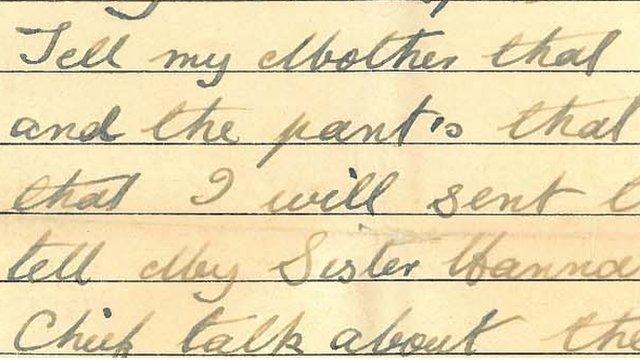 Tell my Mother that
and the pant's that
that I will sent
tell My Sister Hanna
Chief talk about the